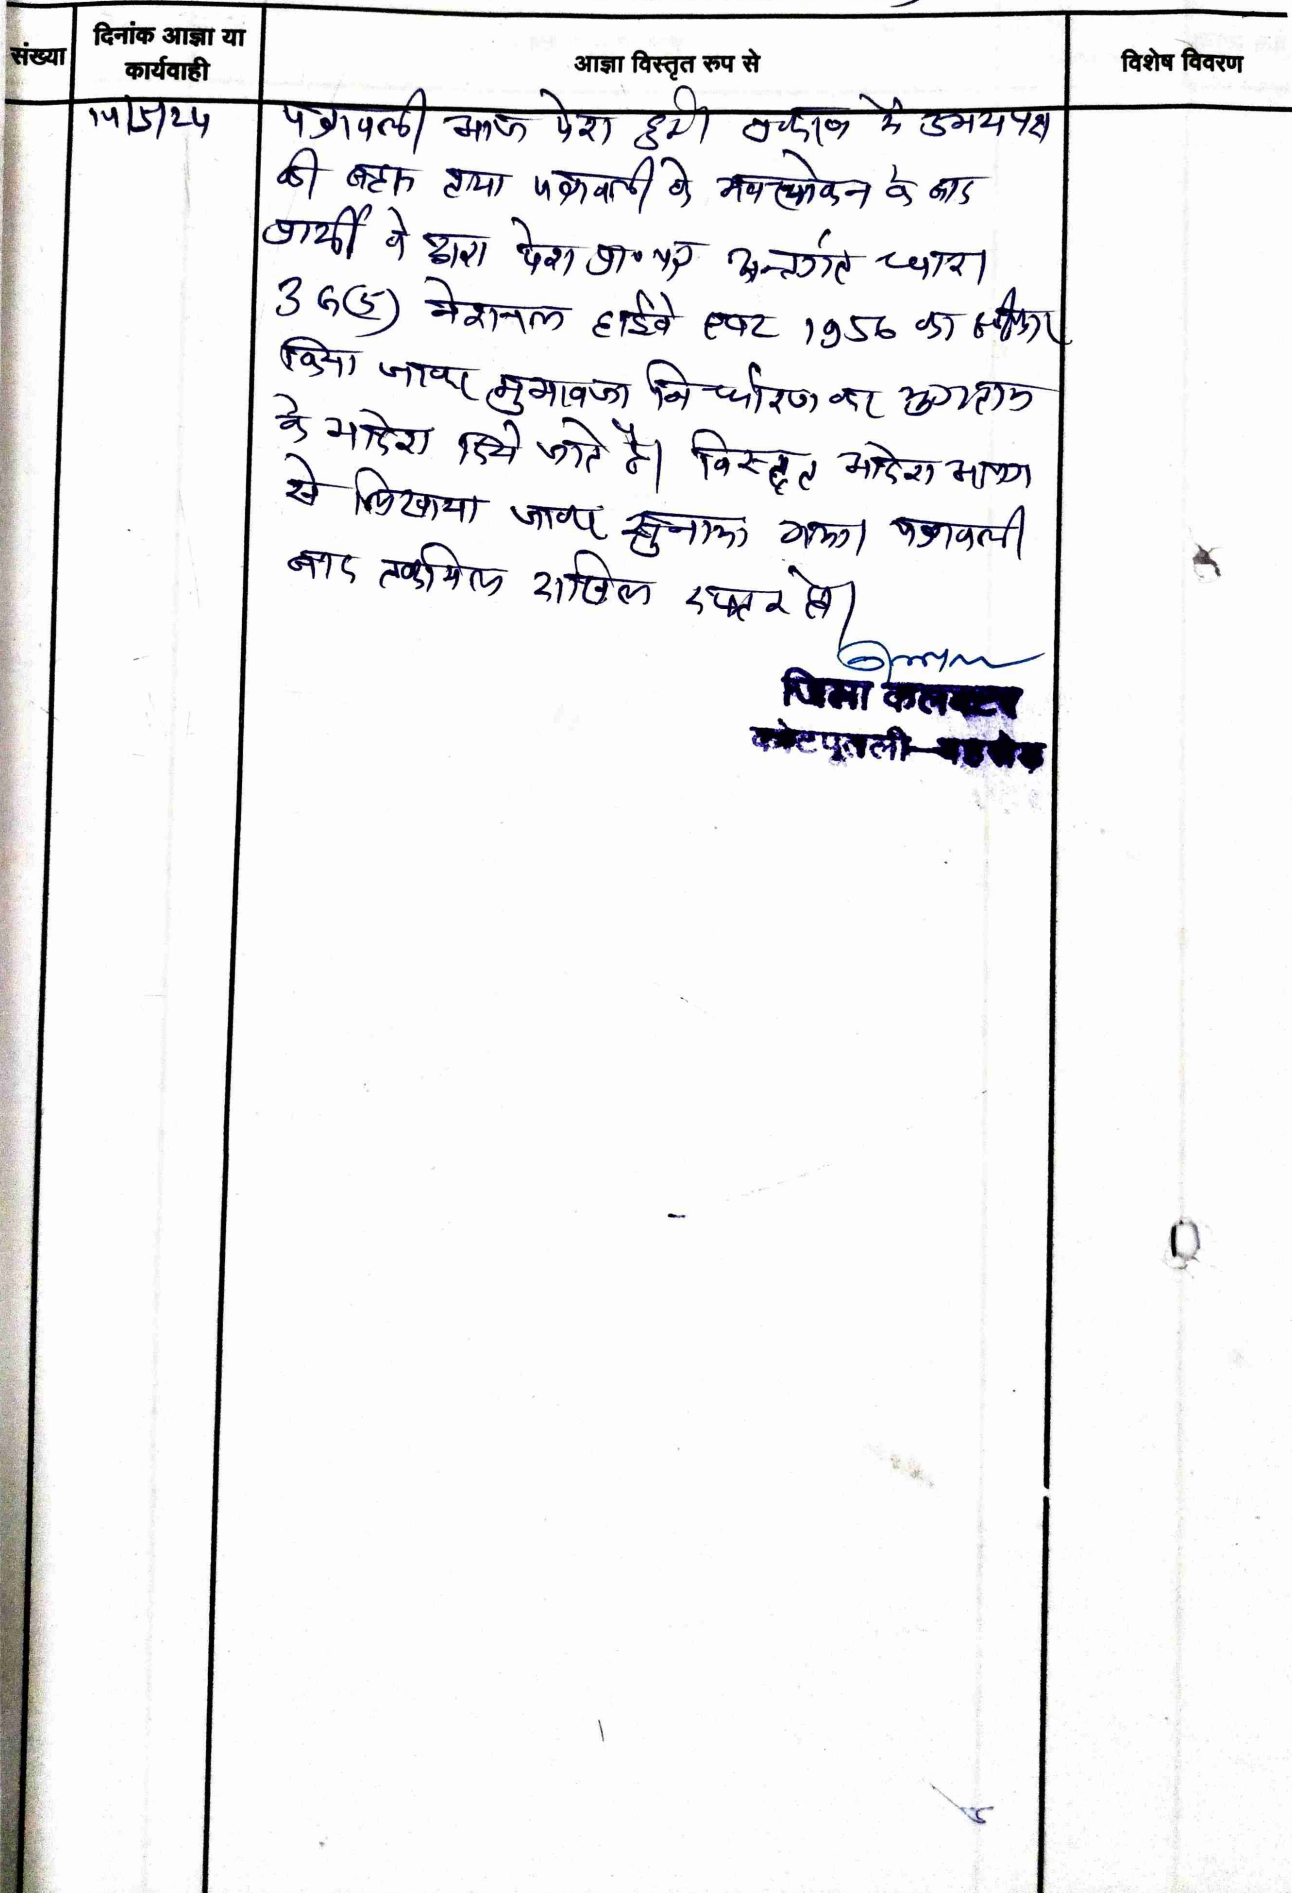 संख्या
दिनांक आज्ञा या
कार्यवाही
आज्ञा विस्तृत रुप से
विशेष विवरण
14/5/24
पत्रावली आज पेश हुयी प्रकरण में उभयपक्ष
की बहस तथा पत्रावली के अवलोकन के बाद
प्रार्थी के द्वारा पेश प्रा॰ पत्र अन्तर्गत धारा
3G(5) नेशनल हाईवे एक्ट 1956 का स्वीकार
किया जाकर मुआवजा निर्धारण कर भुगतान
के आदेश दिये जाते है। विस्तृत आदेश
से लिखाया जाकर सुनाया गया। पत्रावली
बाद तकमिल दाखिल दफ्तर हो।
जिला कलक्टर
कोटपूतली-बहरोड़